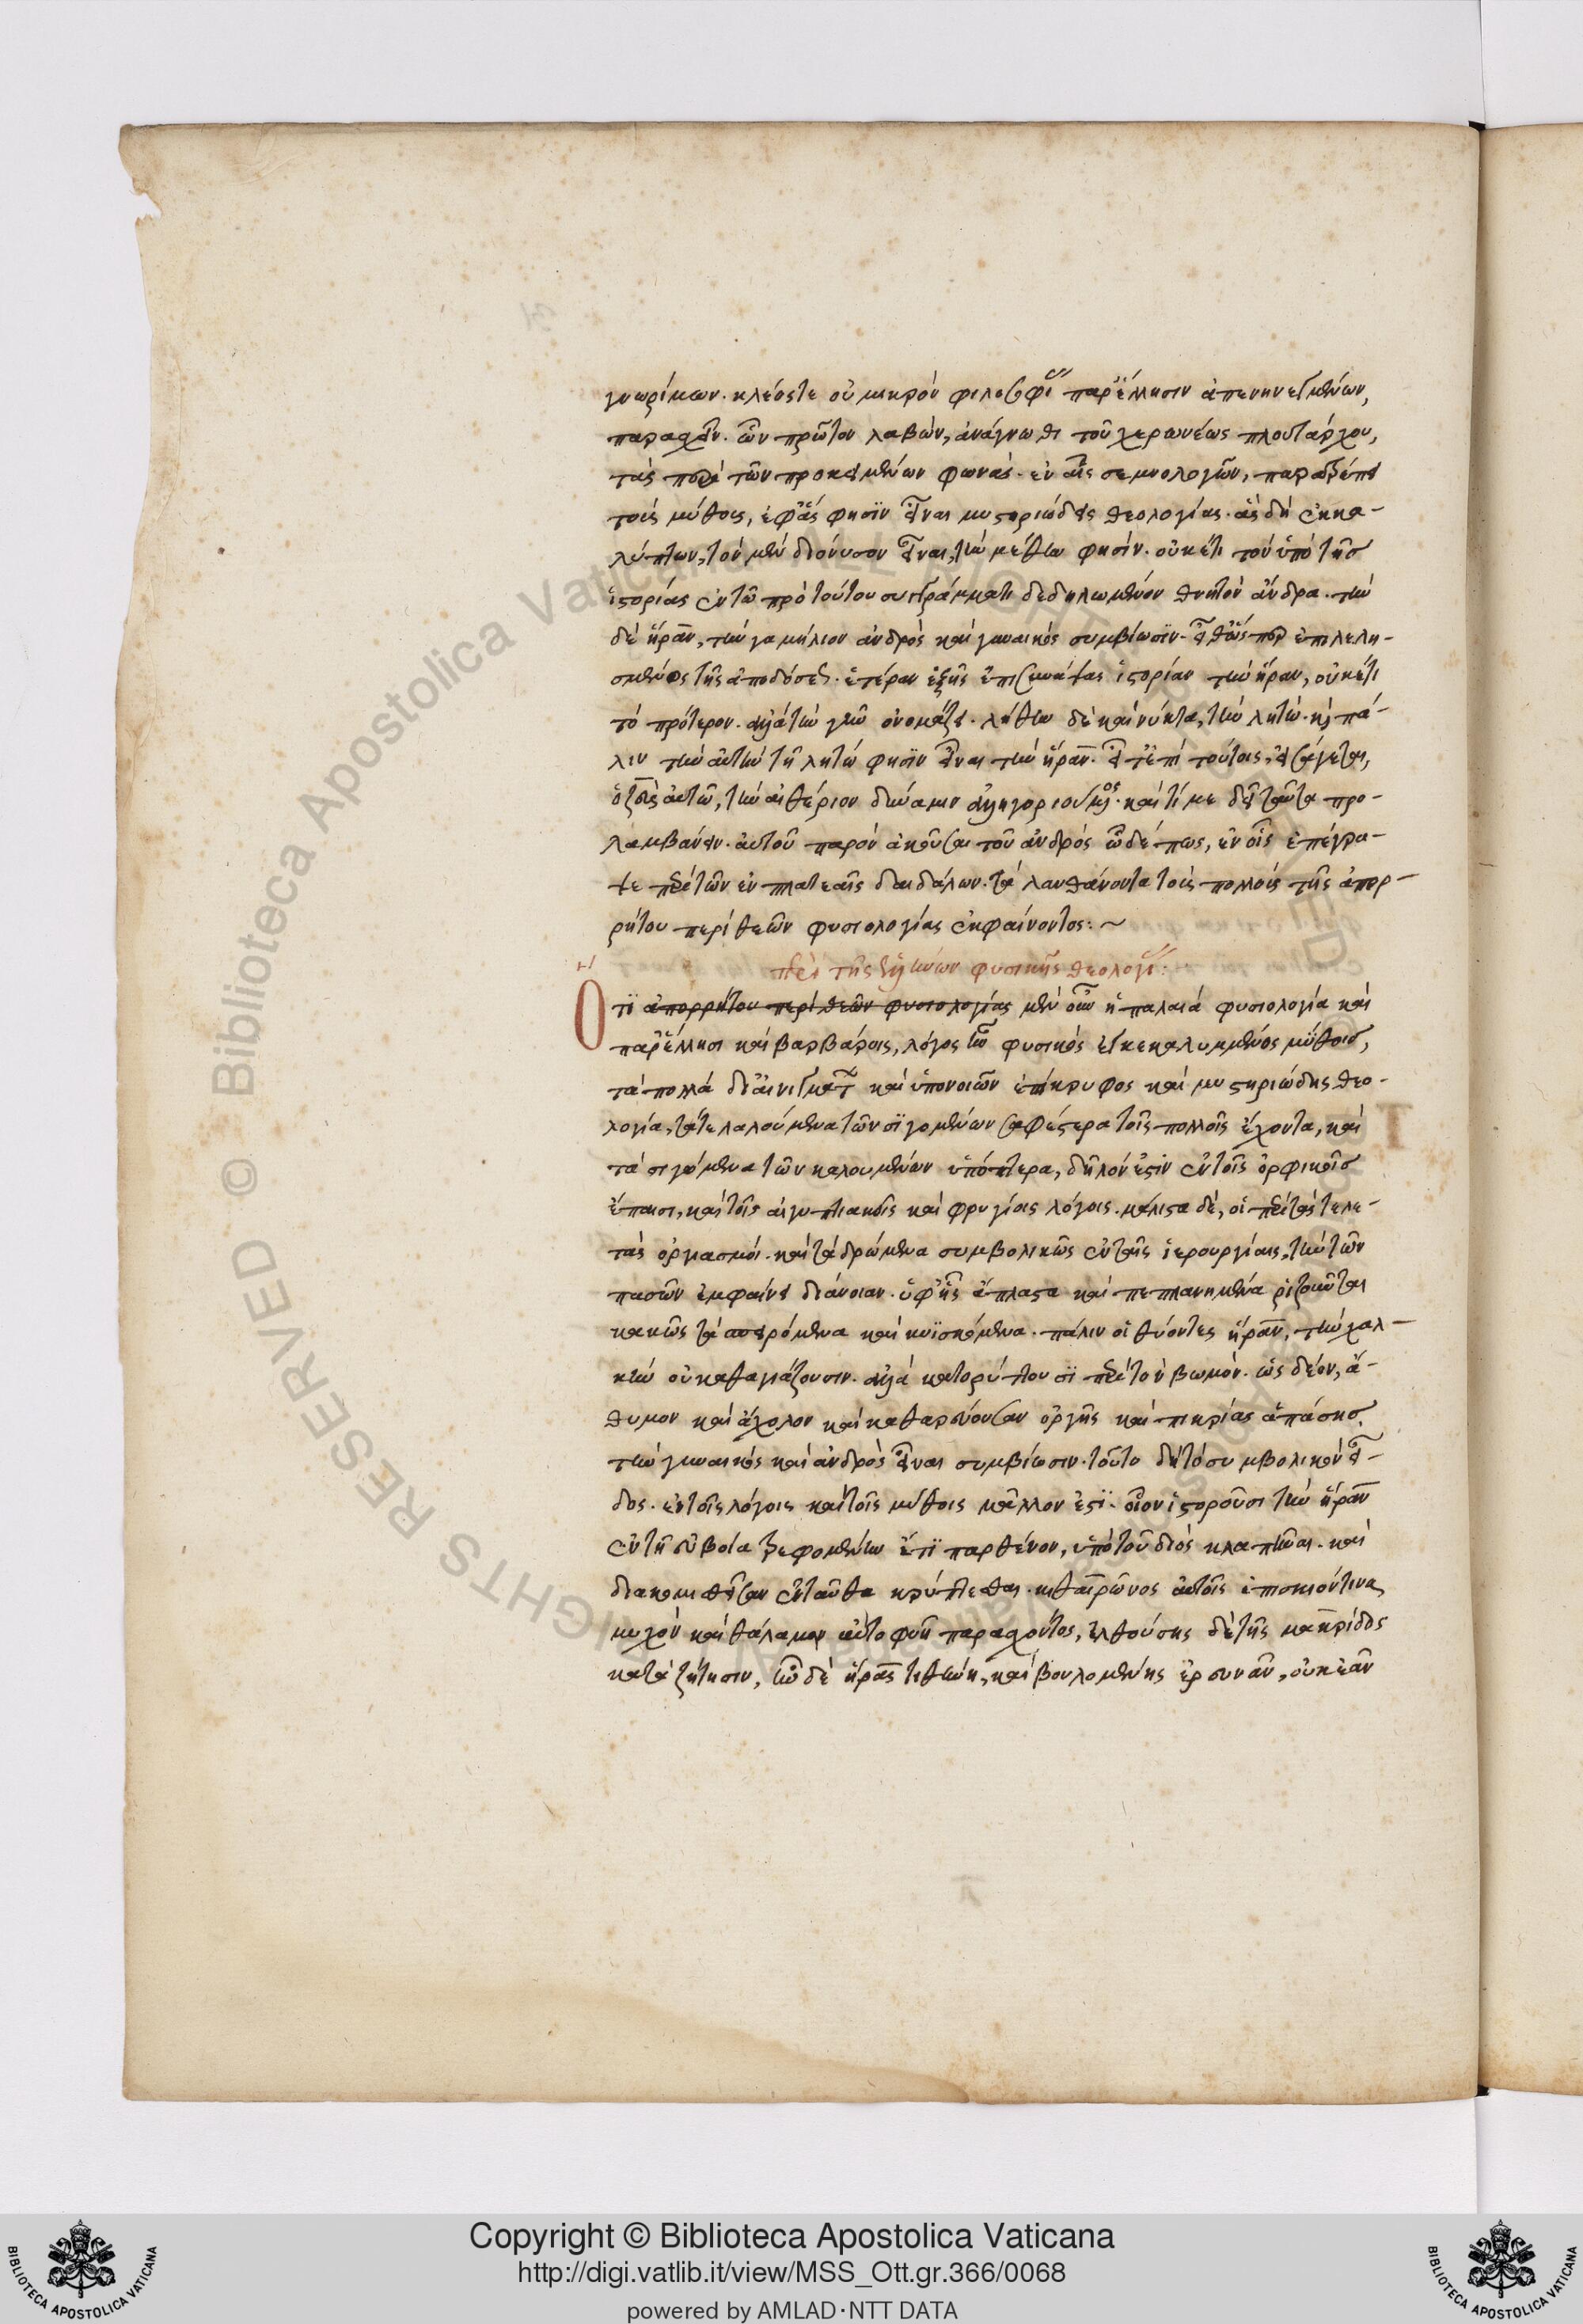 γνωρίμων. κλέος τε οὐ μικρὸν φιλοσοφίας παρ' ἕλλησιν ἀπενηνεγμένων,
παρασχεῖν. ὧν πρῶτον λαβὼν, ἀνάγνωθι τοῦ χερωνέως πλουτάρχου,
τὰς περὶ τῶν προκειμένων φωνάς. ἐν αἷς σεμνολογῶν, παρατρέπει
τοὺς μύθους, ἐφ' ἅς φησϊν εἶναι μυστηριώδεις θεολογίας. ἃς δὴ ἐκκα-
λύπτων, τὸν μὲν διόνυσον εἶναι, τὴν μέθην φησίν. οὐκέτι τὸν ὑπὸ τῆς
ἱστορίας ἐν τῷ πρὸ τούτου συγγράμματι δεδηλωμένον θνητὸν ἄνδρα. τὴν
δὲ ἥραν, τὴν γαμήλιον ἀνδρὸς καὶ γυναικὸς συμβίωσϊν. εἶθ' ὥσπερ ἐπιλελη-
σμένος τῆς ἀποδόσεως. ἑτέραν ἑξῆς ἐπισυνάψας ἱστορίαν τὴν ἥραν, οὐκέτι
τὸ πρότερον. ἀλλὰ τὴν γῆν ὀνομάζει. λήθην δὲ καὶ νύκτα, τὴν λητώ. καὶ πά-
λιν τὴν αὐτὴν τῇ λητώ φησϊν εἶναι τὴν ἥραν. εἶτ' ἐπὶ τούτοις, εἰσάγεται,
ὁ ζεὺς αὐτῷ, τὴν αἰθέριον δύναμιν ἀλληγοριούμενος. καὶ τί με δεῖ ταῦτα προ-
λαμβάνειν. αὐτοῦ παρὸν ἀκοῦσαι τοῦ ἀνδρὸς ὧδέ πως, ἐν οἷς ἐπέγρα-
ψε περὶ τῶν ἐν πλατεαῖς δαιδάλων. τὰ λανθάνοντα τοὺς πολλοὺς τῆς ἀπορ-
ρήτου περὶ θεῶν φυσιολογίας ἐκφαίνοντος: ~
περὶ τῆς ἑλλήνων φυσικῆς θεολογίας:
Οτϊ ἀπορρήτου περὶ θεῶν φυσιολογίας μὲν οὖν ἡ παλαιὰ φυσιολογία καὶ
παρ' ἕλλησι καὶ βαρβάροις, λόγος ἦν φυσικὸς ἐγκεκαλυμμένος μύθοις,
τὰ πολλὰ δι' αἰνιγμάτων καὶ ὑπονοιῶν ἐπίκρυφος καὶ μυστηριώδης θεο-
λογία, τά τε λαλούμενα τῶν σϊγομένων σαφέστερα τοῖς πολλοῖς ἔχοντα, καὶ
τὰ σιγώμενα τῶν καλουμένων ὑπόπτερα, δῆλόν ἐστιν ἐν τοῖς ὀρφικοῖς
ἔπαισι, καὶ τοῖς αἰγυπτιακοῖς καὶ φρυγίοις λόγοις. μάλιστα δὲ, οἱ περὶ τὰς τελε-
τὰς ὀργιασμοί. καὶ τὰ δρώμενα συμβολικῶς ἐν ταῖς ἱερουργίαις, τὴν τῶν
πασῶν ἐμφαίνει διάνοιαν. ὑφ' ἧς ἄπλαστα καὶ πεπλανημένα ῥιζοῦται
κακῶς τὰ σπειρόμενα καὶ κυϊσκόμενα. πάλιν οἱ θύοντες ἥραν, τὴν χαλ-
κὴν οὐ καθαγιάζουσιν. ἀλλὰ κατορύττουσϊ περὶ τὸν βωμόν. ὡς δέον, ἄ-
θυμον καὶ ἄχολον καὶ καθαρεύουσαν ὀργῆς καὶ πικρίας ἁπάσης,
τὴν γυναικὸς καὶ ἀνδρὸς εἶναι συμβίωσιν. τοῦτο δὴ τὸ συμβολικὸν εἶ-
δος. ἐν τοῖς λόγοις καὶ τοῖς μύθοις μᾶλλόν ἐστϊ. οἷον ἱστοροῦσι τὴν ἥραν
ἐν τῇ εὐβοία τρεφομένην ἔτϊ παρθένον, ὑπὸ τοῦ διὸς κλαπῆναι. καὶ
διακομισθεῖσαν ἐνταῦθα κρύπτεσθαι. κιθαιρῶνος αὐτοῖς ἐπισκιόν τινα
μυχὸν καὶ θάλαμον αὐτοφυῆ παρασχόντος, ἐλθούσης δὲ τῆς μακρίδος
κατὰ ζήτησιν, ἦν δὲ ἥρας τιθήνη, καὶ βουλομένης ἐρευνᾶν, οὐκ ἐᾶν
Copyright © Biblioteca Apostolica Vaticana
http://digi.vatlib.it/view/MSS_Ott.gr.366/0068
powered by AMLAD·NTT DATA